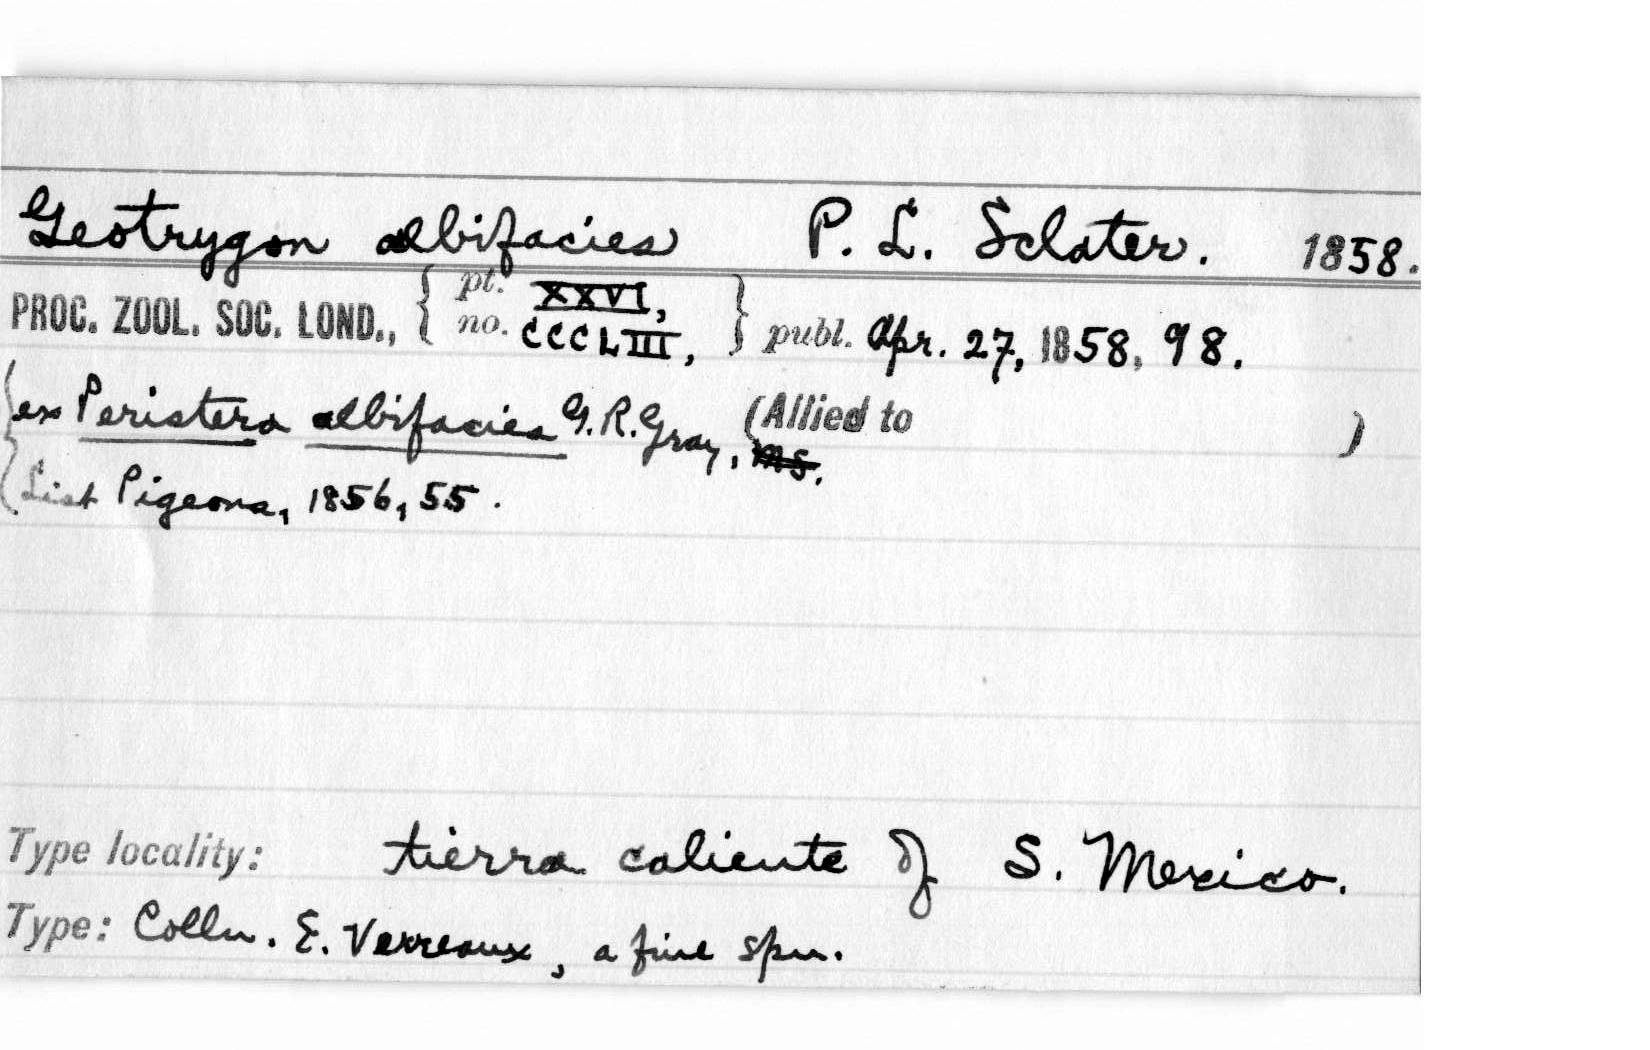 Geotrygon albifacies P. L. Sclater. 1858.
PROC. ZOOL. SOC. LOND., { pt. XXVI, no. CCCLIII, } publ. Apr. 27, 1858, 98.
{ex Peristera albifacies G.R.Gray, MS. (Allied to )
List Pigeons, 1856, 55.
Type locality: tierra caliente of S. Mexico.
Type: Colln. E. Verreaux, a fine spn.